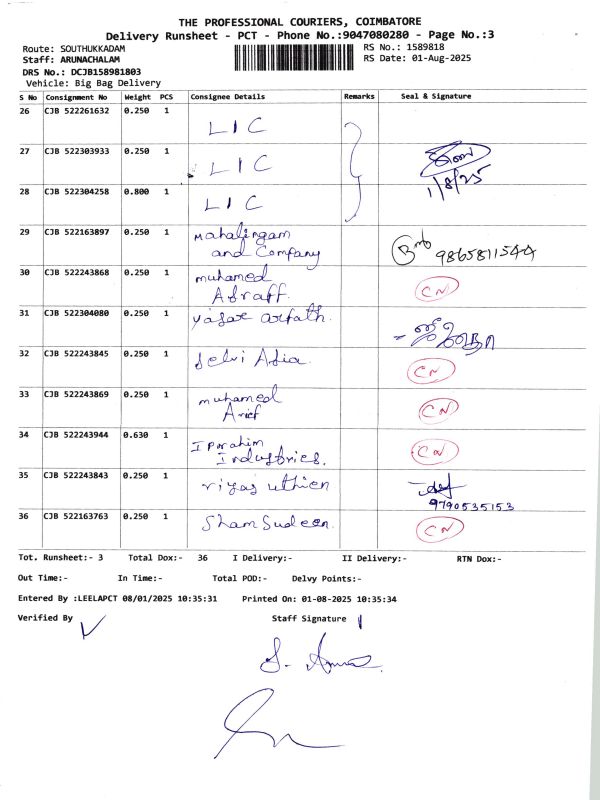 THE PROFESSIONAL COURIERS, COIMBATORE
Delivery Runsheet - PCT - Phone No.:9047080280 - Page No.:3
Route: SOUTHUKKADAM
RS No.: 1589818
Staff: ARUNACHALAM
RS Date: 01-Aug-2025
DRS No.: DCJB158981803
Vehicle: Big Bag Delivery
S No Consignment No Weight PCS Consignee Details Remarks Seal & Signature
26 CJB 522261632 0.250 1 LIC
27 CJB 522303933 0.250 1 LIC
28 CJB 522304258 0.800 1 LIC 1/8/25
29 CJB 522163897 0.250 1 Mahalingam
and Company 9865811544
30 CJB 522243868 0.250 1 muhamed
Asraff. CN
31 CJB 522304080 0.250 1 yasar arfath.
32 CJB 522243845 0.250 1 Selvi Asia. CN
33 CJB 522243869 0.250 1 muhamed
Arief CN
34 CJB 522243944 0.630 1 Iprahim
Industries. CN
35 CJB 522243843 0.250 1 riyas uthien
9790535153
36 CJB 522163763 0.250 1 Sham Sudeen. CN
Tot. Runsheet:- 3 Total Dox:- 36 I Delivery:- II Delivery:- RTN Dox:-
Out Time:- In Time:- Total POD:- Delvy Points:-
Entered By :LEELAPCT 08/01/2025 10:35:31 Printed On: 01-08-2025 10:35:34
Verified By Staff Signature